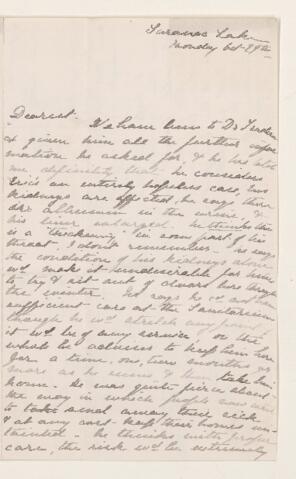 Saranac Lake
Monday Oct 29th
Dearest. We have been to Dr
& given him all the further infor
mation he asked for, & he has told
me definitely that he considers
Eric's an entirely hopeless case, two
kidneys are affected, he says there
are albumen in the urine &
his liver enlarged. He thinks there
is a "thickening" in some part of his
throat, I don't remember. He says
the condition of his kidneys alone
wd. make it undesirable for him
to try & sit out of doors here through
the winter. He says he cd not have
sufficient care at the Sanitarium
though he wd stretch any point
it wd. be of any service, or the
what he advises to keep him here
for a time, one, two months or
more as he seems & then take him
home. He was quite fierce about
the way in which people now want
to take send away their sick
& at any cost keep their homes un
tainted. He thinks with proper
care, the risk wd. be extremely